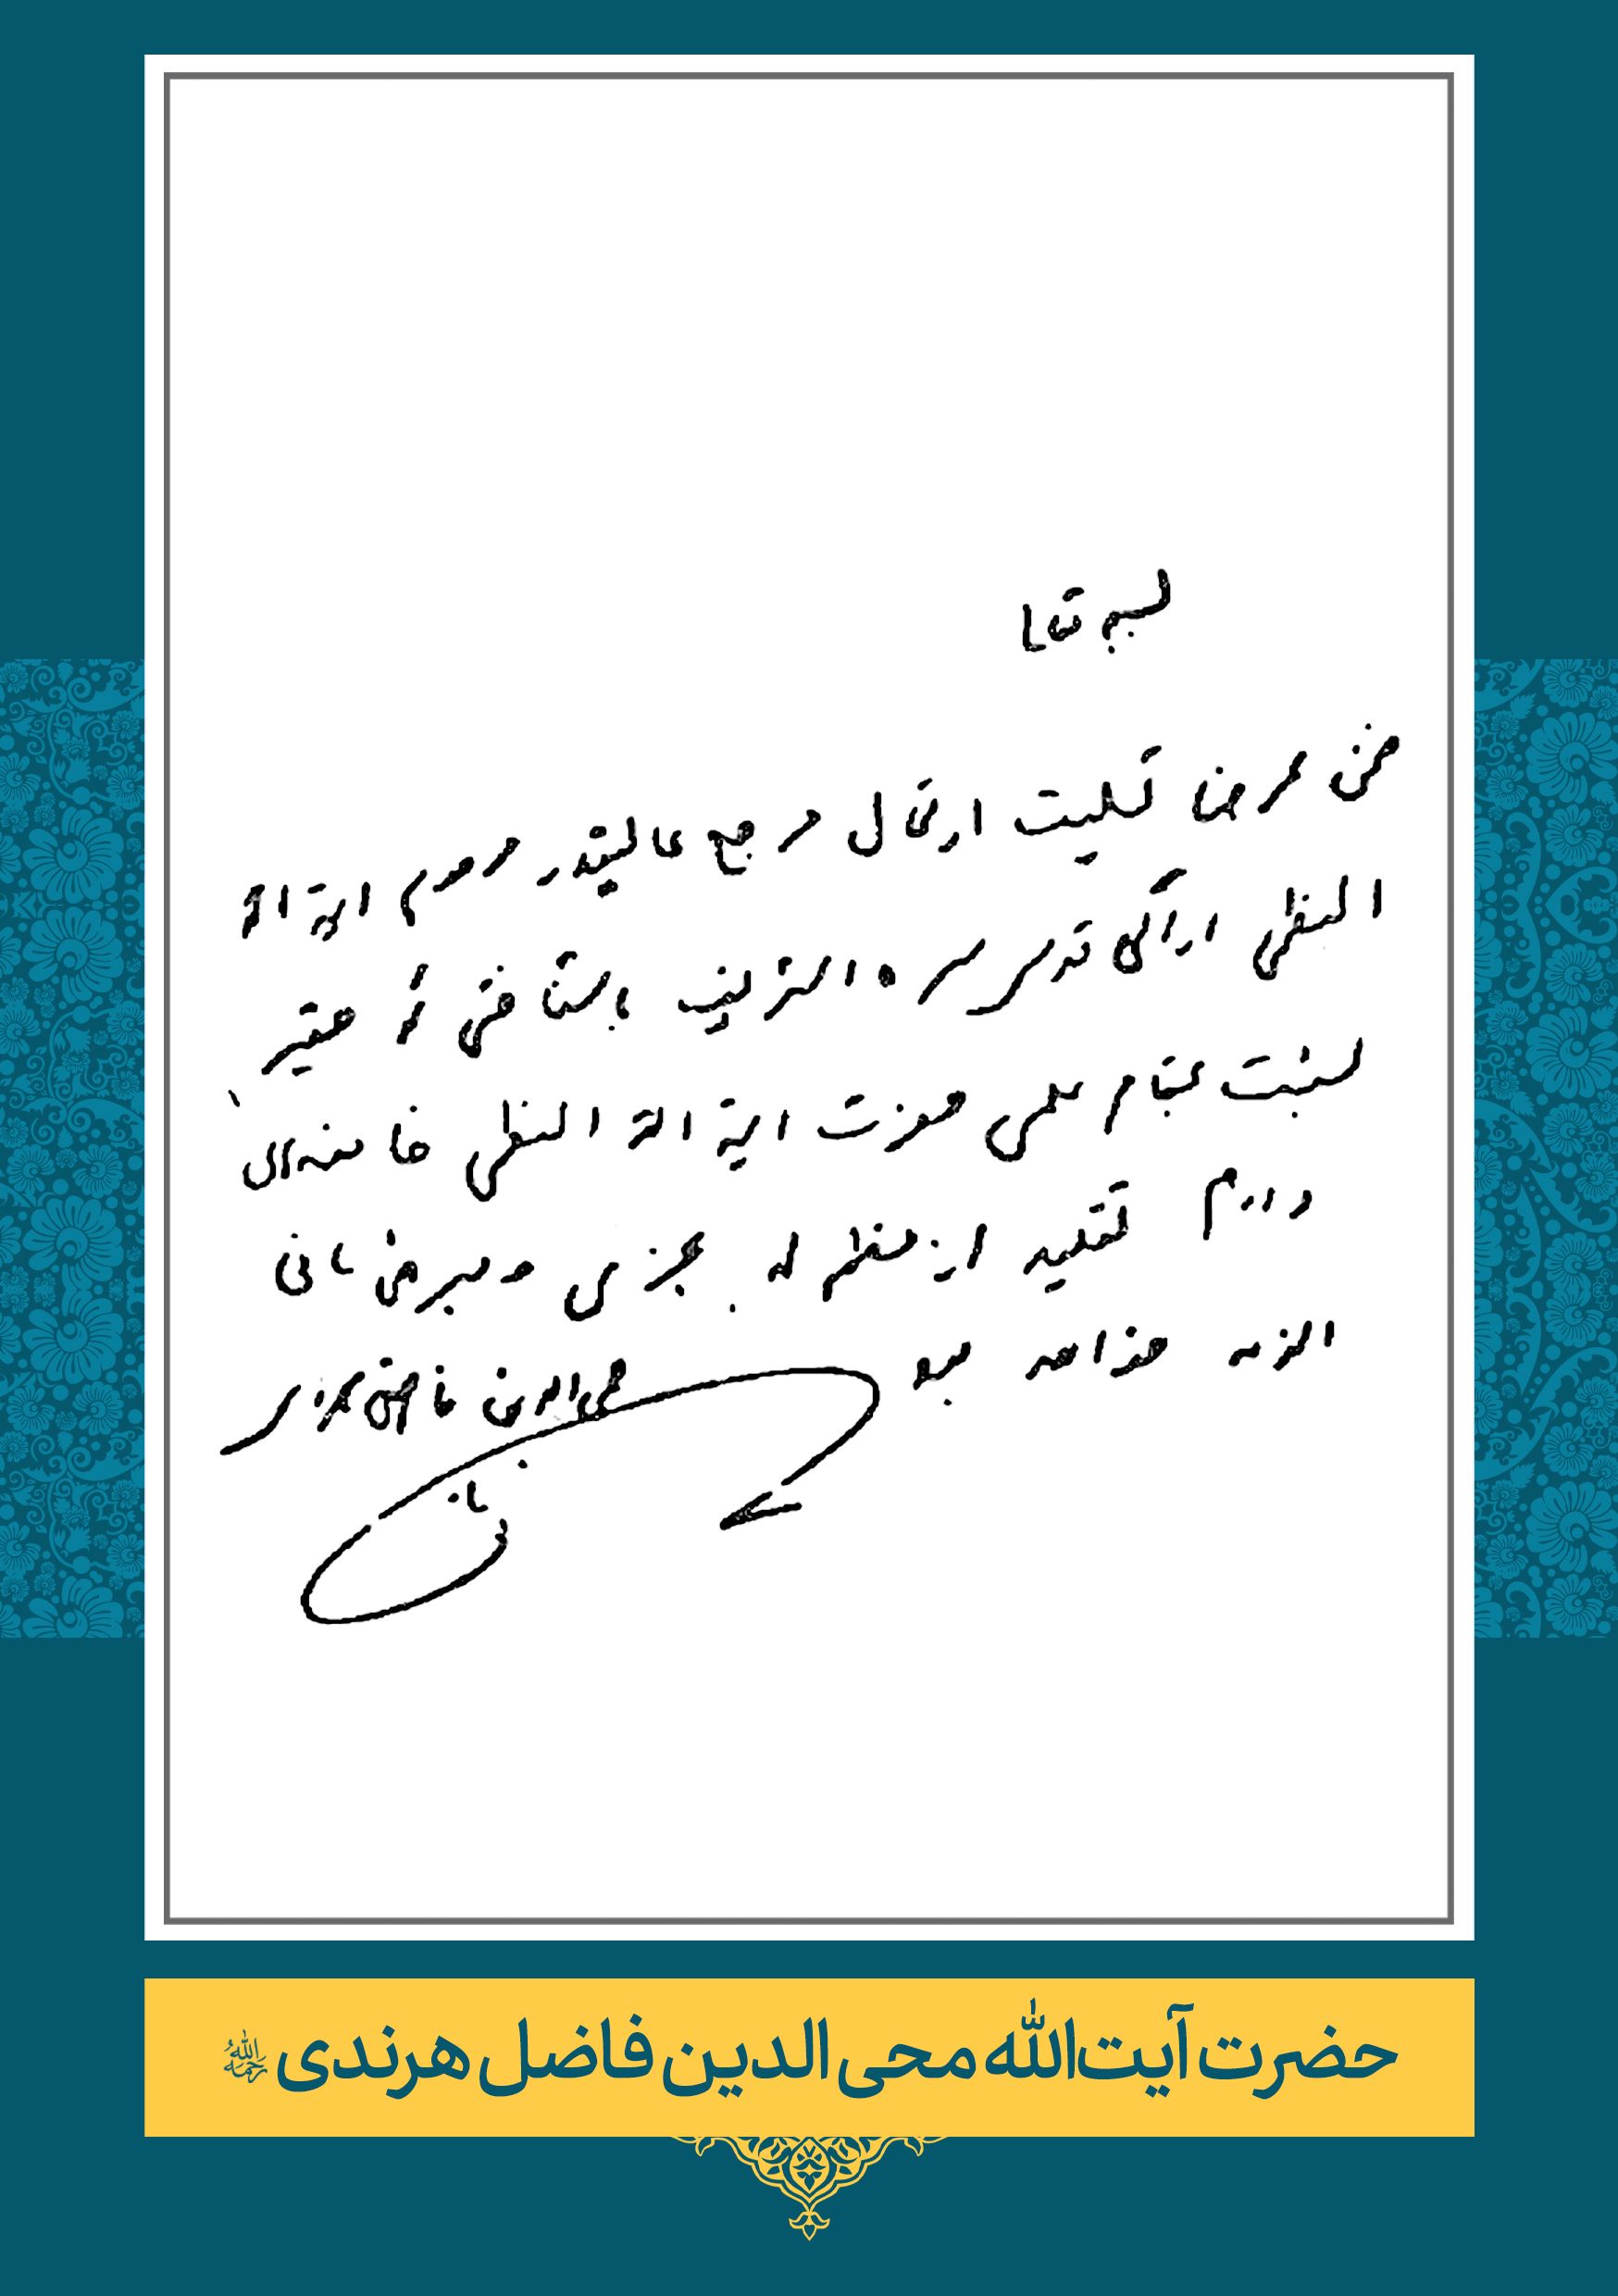 بسمه تعالی
ضمن عرض تسلیت ارتحال مرجع عالیقدر مرحوم ایة الله
العظمی اراکی قدس سره الشریف باشناختی که حقیر
نسبت بمقام علمی حضرت ایة الله العظمی خامنه‌ای
دارم تقلید از معظم له مجزی و مبرء ذمه
انشاءالله
محی الدین فاضل هرندی
حضرت آیت‌الله محی الدین فاضل هرندی رحمه‌الله